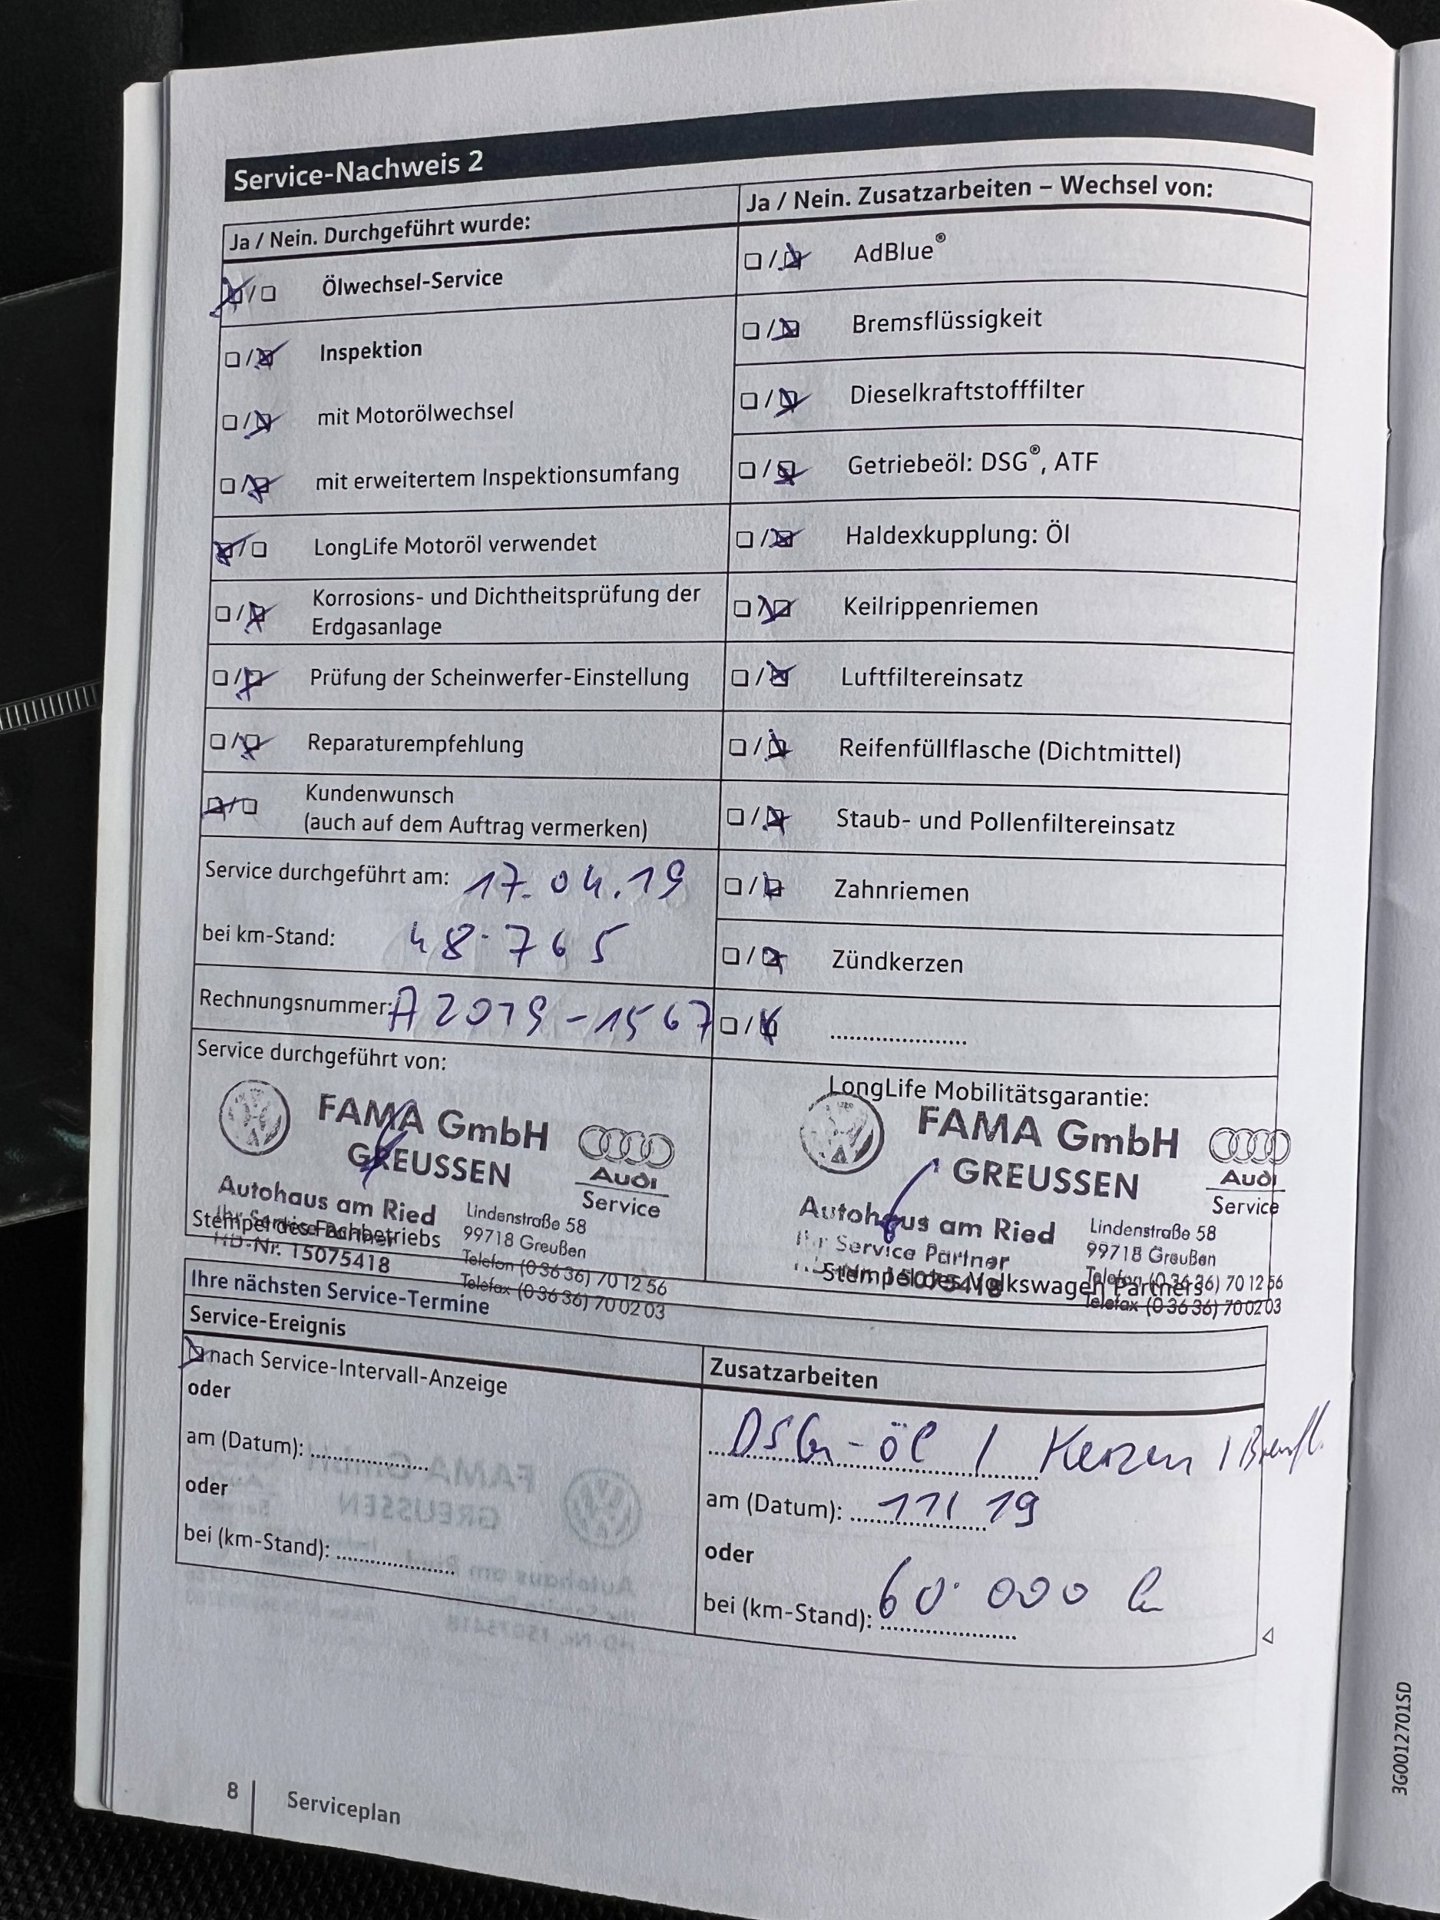 Service-Nachweis 2
Ja / Nein. Durchgeführt wurde:
Ölwechsel-Service
Inspektion
mit Motorölwechsel
mit erweitertem Inspektionsumfang
LongLife Motoröl verwendet
Korrosions- und Dichtheitsprüfung der
Erdgasanlage
Prüfung der Scheinwerfer-Einstellung
Reparaturempfehlung
Kundenwunsch
(auch auf dem Auftrag vermerken)
Service durchgeführt am: 17.04.19
bei km-Stand: 48.765
Rechnungsnummer: A2019-1567
Ja / Nein. Zusatzarbeiten – Wechsel von:
AdBlue®
Bremsflüssigkeit
Dieselkraftstofffilter
Getriebeöl: DSG®, ATF
Haldexkupplung: Öl
Keilrippenriemen
Luftfiltereinsatz
Reifenfüllflasche (Dichtmittel)
Staub- und Pollenfiltereinsatz
Zahnriemen
Zündkerzen
Service durchgeführt von:
FAMA GmbH
GREUSSEN
Audi
Service
Autohaus am Ried
Ihr Service Partner
HD-Nr. 15075418
Lindenstraße 58
99718 Greußen
Telefon (0 36 36) 70 12 56
Telefax (0 36 36) 70 02 03
Stempel des Fachbetriebs
LongLife Mobilitätsgarantie:
FAMA GmbH
GREUSSEN
Audi
Service
Autohaus am Ried
Ihr Service Partner
15075418
Lindenstraße 58
99718 Greußen
Telefon (0 36 36) 70 12 56
Telefax (0 36 36) 70 02 03
Stempel des Volkswagen Partners
Ihre nächsten Service-Termine
Service-Ereignis
nach Service-Intervall-Anzeige
oder
am (Datum):
oder
bei (km-Stand):
Zusatzarbeiten
DSG-öl / Kerzen / Bremsfl.
am (Datum): 11/19
oder
bei (km-Stand): 60.000
8
Serviceplan
3G0012701SD